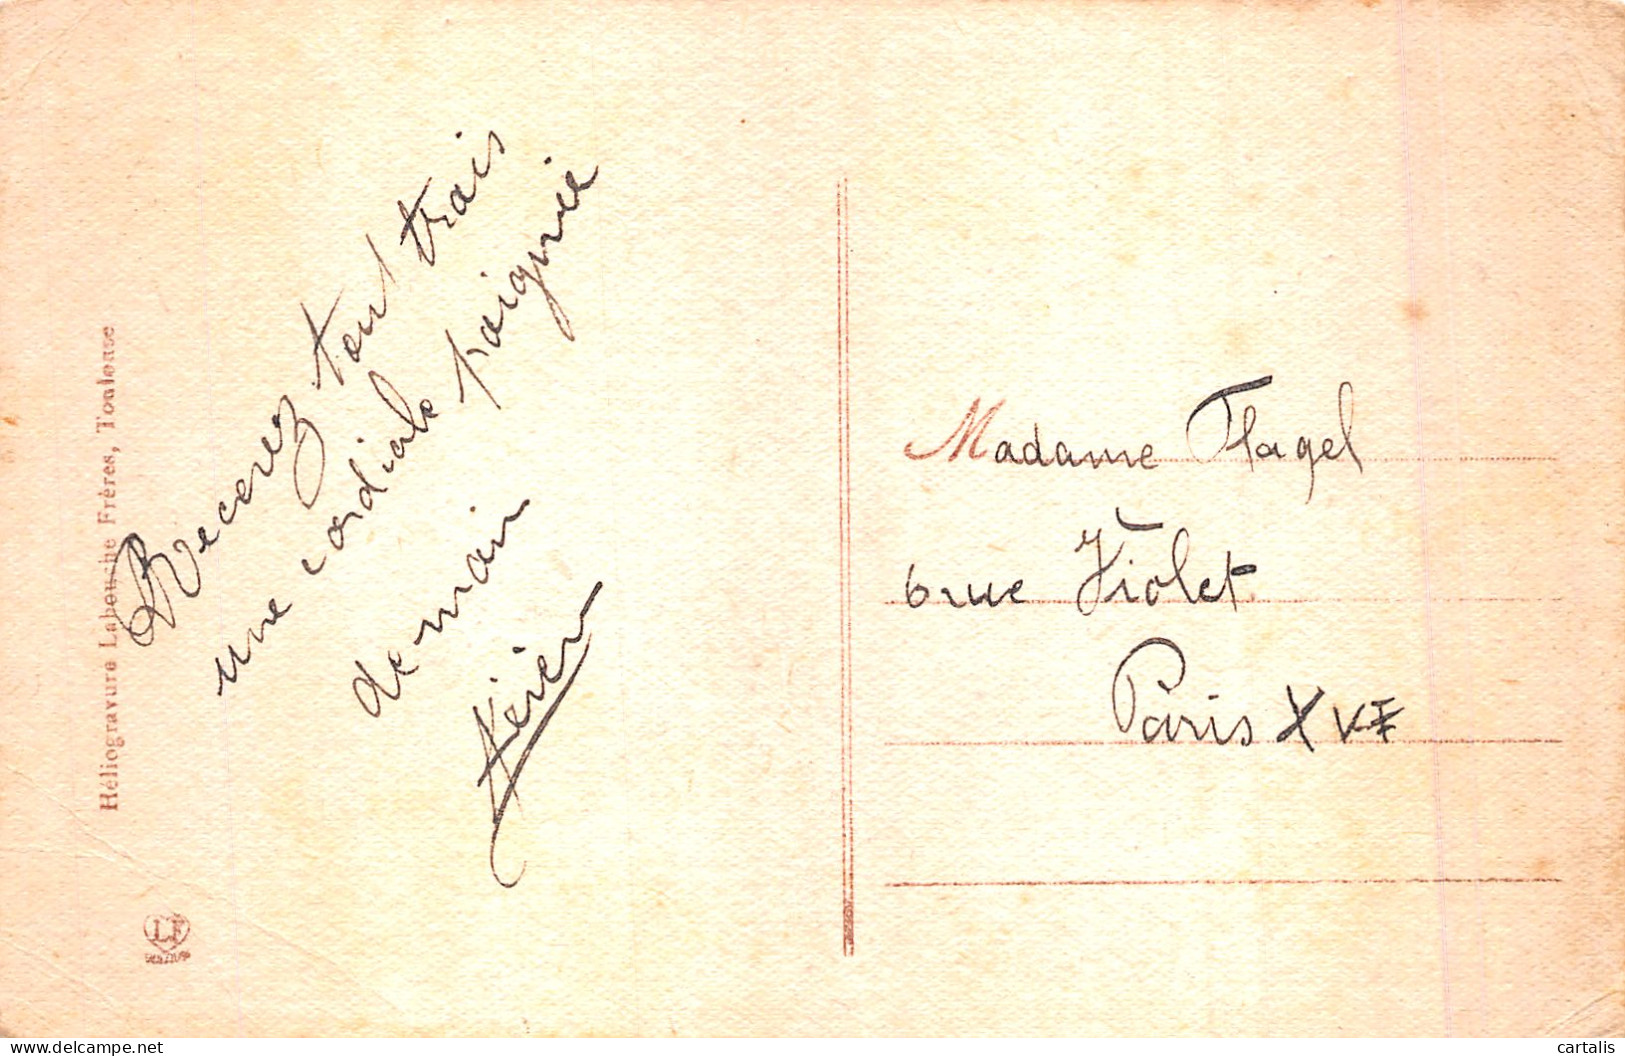 Recevez tout trais
une cordiale poignée
de main
Héliogravure Labouche Frères, Toulouse
LF
Madame Flagel
6 rue Violet
Paris XVE
delcampe.net
cartalis